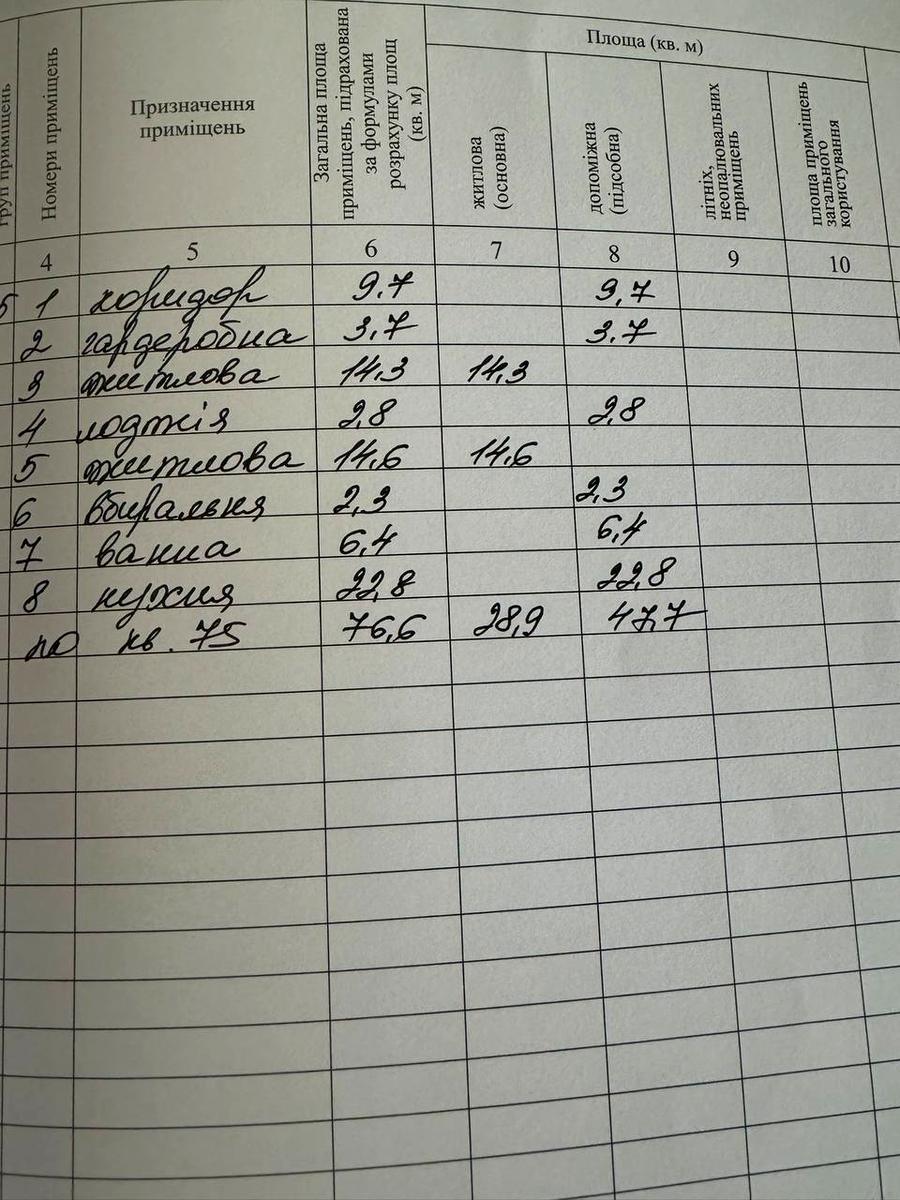 груп приміщень
Номери приміщень
Призначення приміщень
Загальна площа приміщень, підрахована за формулами розрахунку площ (кв. м)
Площа (кв. м)
житлова (основна)
допоміжна (підсобна)
літніх, неопалювальних приміщень
площа приміщень загального користування
4 5 6 7 8 9 10
5 1 коридор 9.7 9,7
2 гардеробна 3.7 3.7
3 житлова 14.3 14.3
4 лоджія 2,8 2,8
5 житлова 14.6 14.6
6 вбиральня 2,3 2,3
7 ванна 6,4 6,4
8 кухня 22,8 22,8
по кв. 75 76,6 28,9 47,7